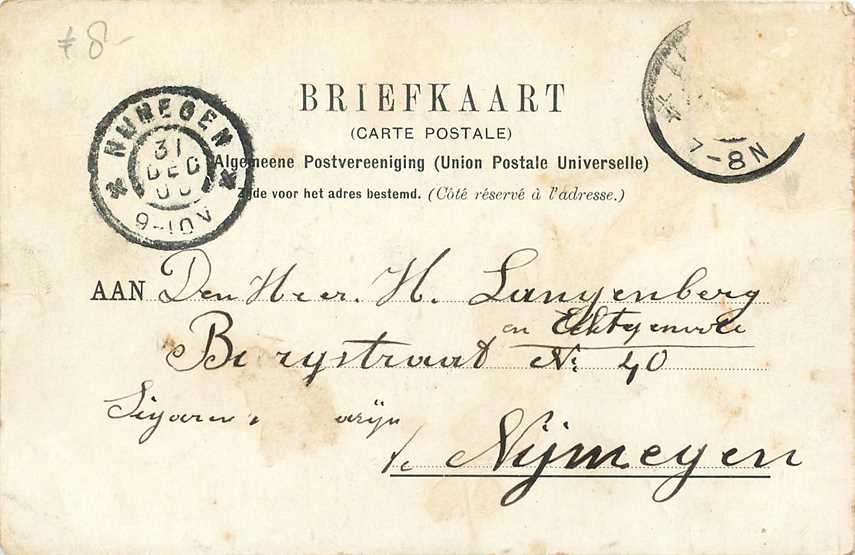 ƒ 8-
BRIEFKAART
(CARTE POSTALE)
Algemeene Postvereeniging (Union Postale Universelle)
Zijde voor het adres bestemd. (Côté réservé à l'adresse.)
NIJMEGEN
31
DEC
00
7-8N
AAN Den Heer. H. Langenberg
en Echtgenoote
Burgstraat No 40
te Nijmegen